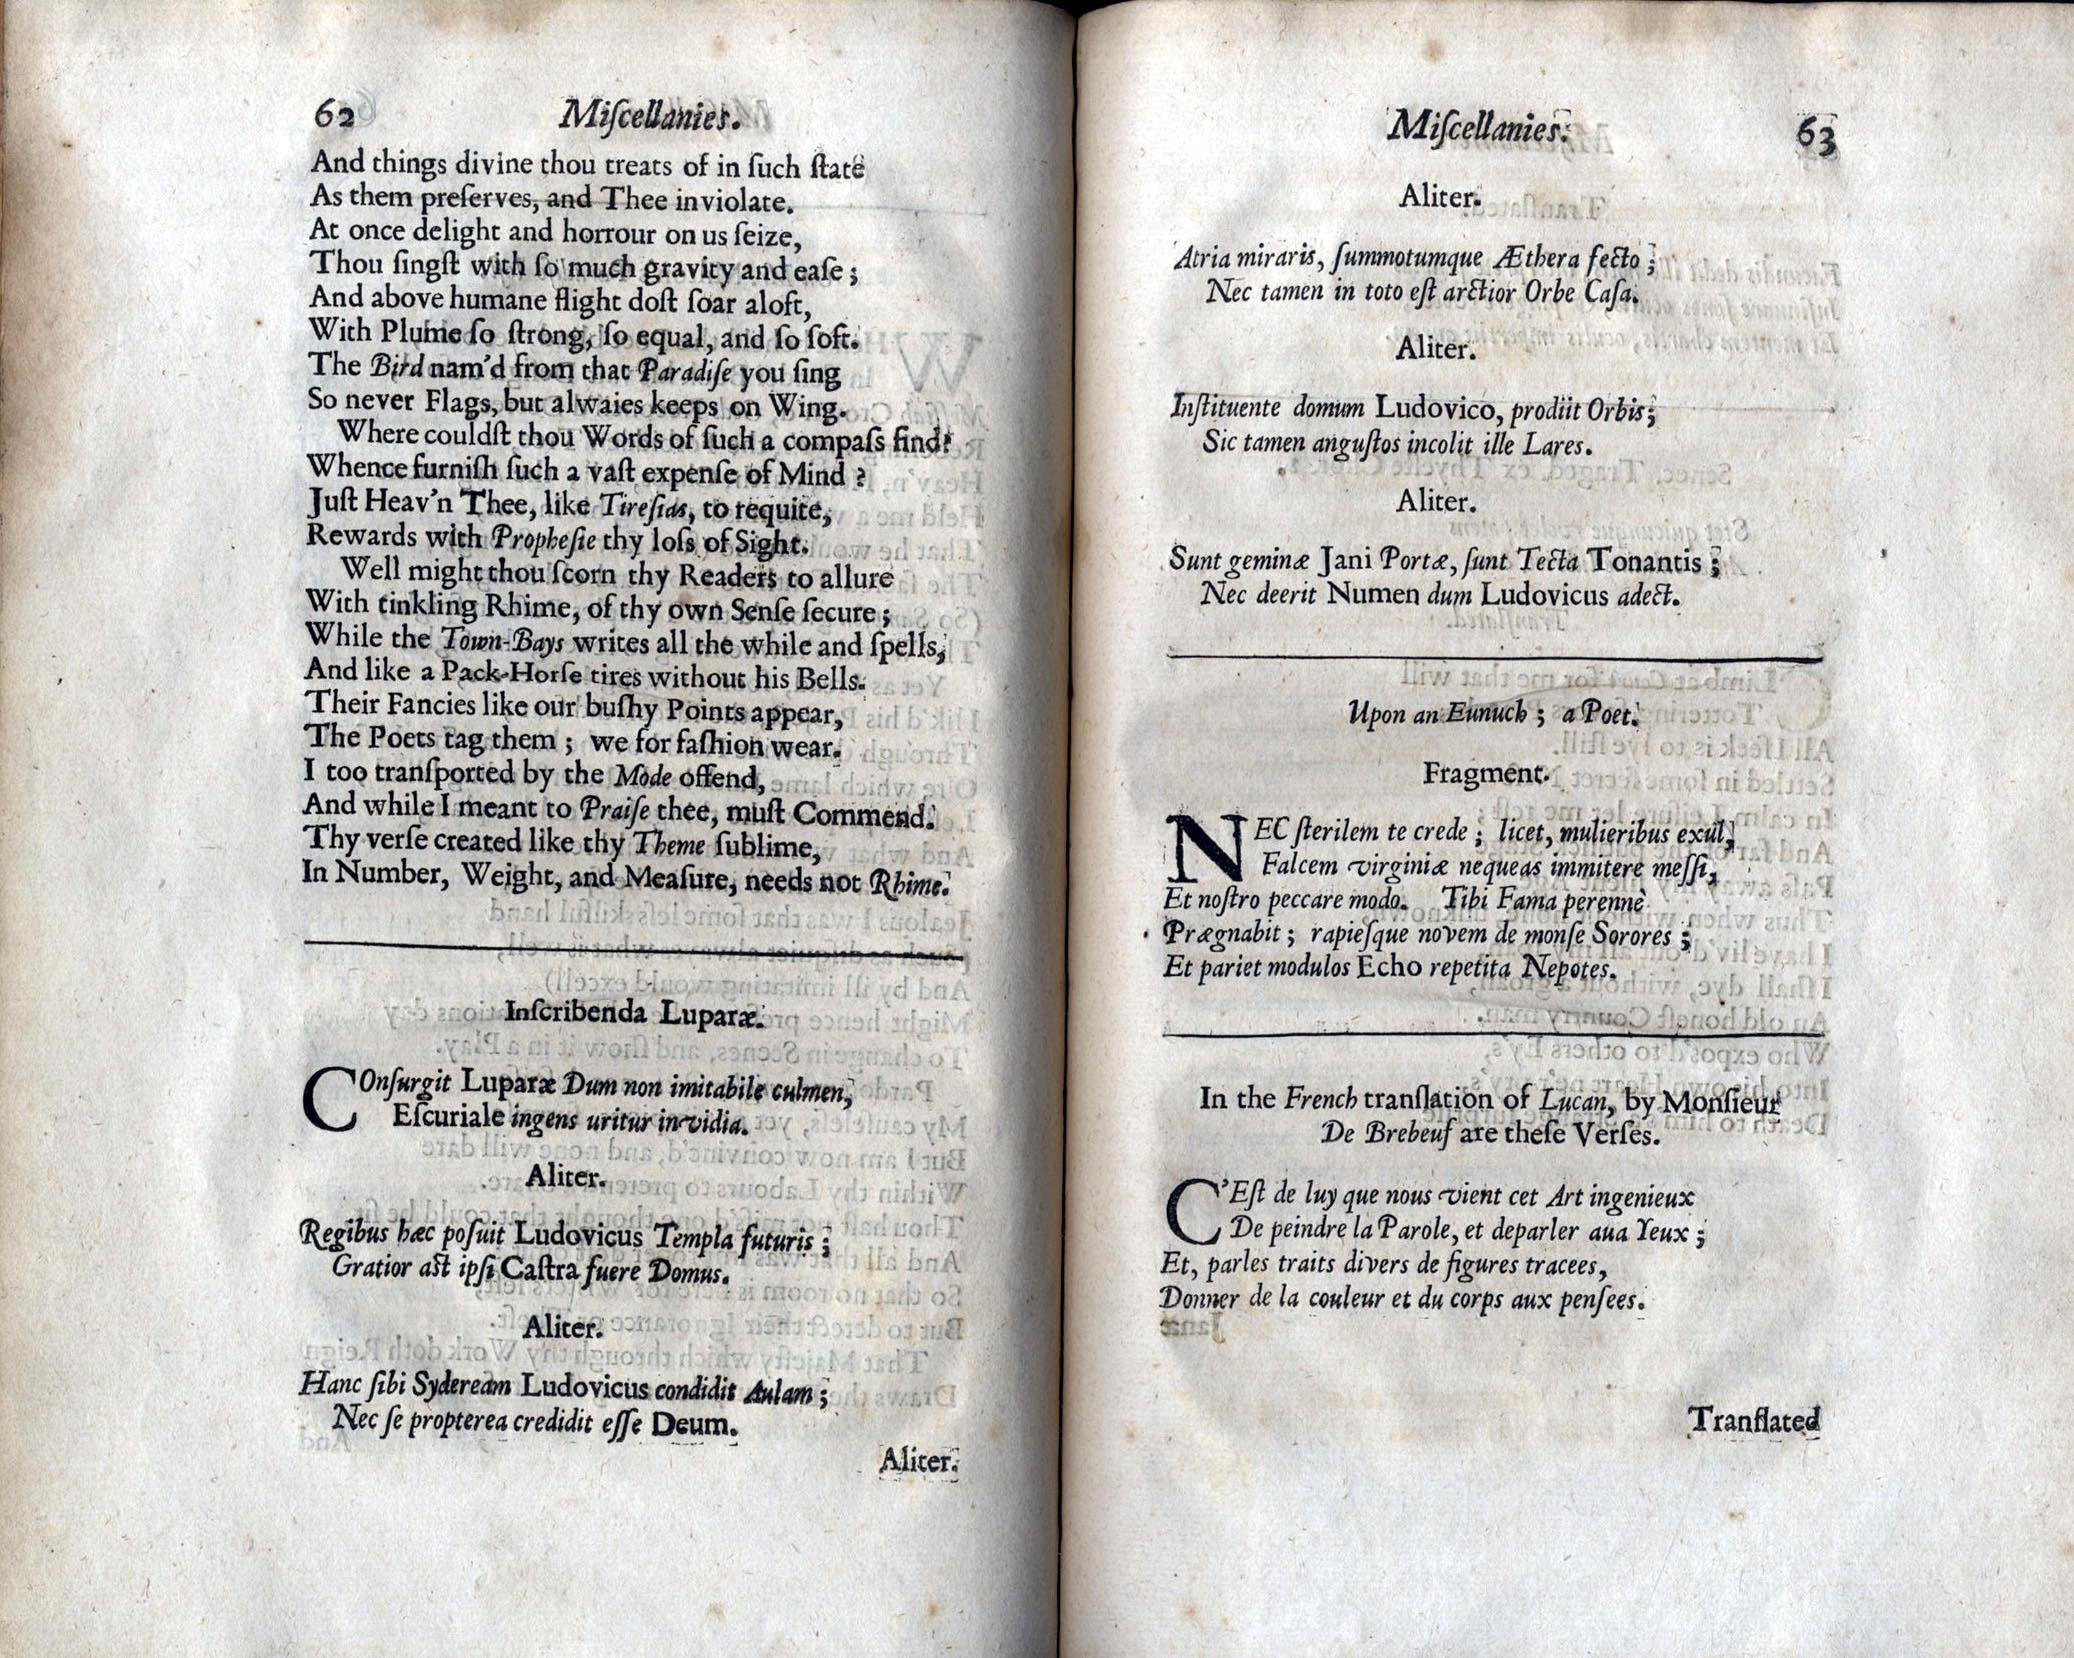 62 Miſcellanies.
And things divine thou treats of in ſuch ſtate
As them preſerves, and Thee inviolate.
At once delight and horrour on us ſeize,
Thou ſingſt with ſo much gravity and eaſe;
And above humane flight doſt ſoar aloft,
With Plume ſo ſtrong, ſo equal, and ſo ſoft.
The Bird nam'd from that Paradiſe you ſing
So never Flags, but alwaies keeps on Wing.
Where couldſt thou Words of ſuch a compaſs find?
Whence furniſh ſuch a vaſt expenſe of Mind?
Juſt Heav'n Thee, like Tireſias, to requite,
Rewards with Propheſie thy loſs of Sight.
Well might thou ſcorn thy Readers to allure
With tinkling Rhime, of thy own Senſe ſecure;
While the Town-Bays writes all the while and ſpells,
And like a Pack-Horſe tires without his Bells.
Their Fancies like our buſhy Points appear,
The Poets tag them; we for faſhion wear.
I too tranſported by the Mode offend,
And while I meant to Praiſe thee, muſt Commend.
Thy verſe created like thy Theme ſublime,
In Number, Weight, and Meaſure, needs not Rhime.
Inſcribenda Luparæ.
COnſurgit Luparæ Dum non imitabile culmen,
Eſcuriale ingens uritur invidia.
Aliter.
Regibus hæc poſuit Ludovicus Templa futuris;
Gratior aſt ipſi Caſtra fuere Domus.
Aliter.
Hanc ſibi Sydeream Ludovicus condidit Aulam;
Nec ſe propterea credidit eſſe Deum.
Aliter.
Miſcellanies. 63
Aliter.
Atria miraris, ſummotumque Æthera fecto;
Nec tamen in toto eſt arctior Orbe Caſa.
Aliter.
Inſtituente domum Ludovico, prodiit Orbis;
Sic tamen anguſtos incolit ille Lares.
Aliter.
Sunt geminæ Jani Portæ, ſunt Tecta Tonantis;
Nec deerit Numen dum Ludovicus adect.
Upon an Eunuch; a Poet.
Fragment.
NEC ſterilem te crede; licet, mulieribus exul,
Falcem virginiæ nequeas immitere meſſi,
Et noſtro peccare modo. Tibi Fama perennè
Prægnabit; rapieſque novem de monſe Sorores;
Et pariet modulos Echo repetita Nepotes.
In the French tranſlation of Lucan, by Monſieur
De Brebeuf are theſe Verſes.
C'Eſt de luy que nous vient cet Art ingenieux
De peindre la Parole, et deparler aua Yeux;
Et, parles traits divers de figures tracees,
Donner de la couleur et du corps aux penſees.
Tranſlated